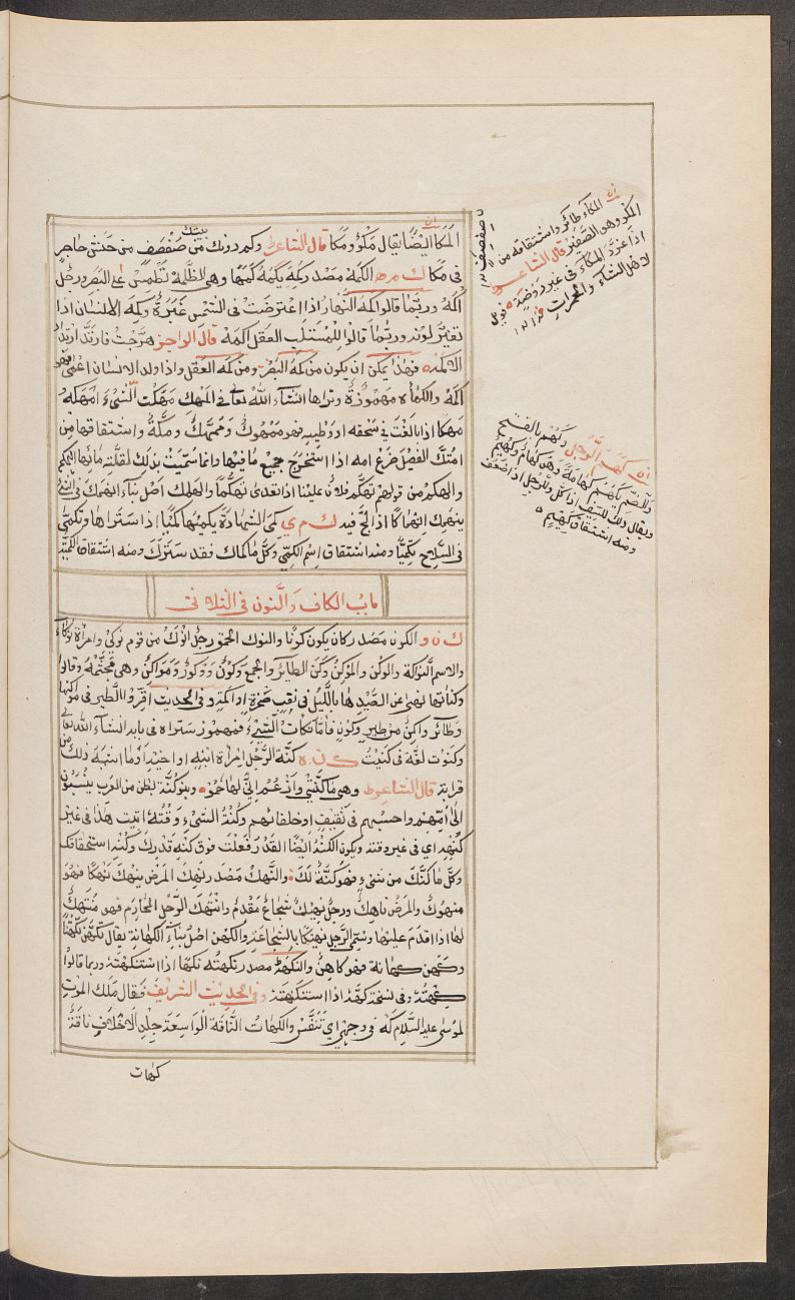 المكا ايضًا يقال مَكْوٌ ومَكًا قال الشاعر وكم دون بيتك من صَفْصَفٍ من حَنَشٍ حاجِرٍ
في مَكًا ك م ه الكَمَهُ مصدر كَمِهَ يكمَهُ كَمَهًا وهي الظلمة تطمس على البصر ورجل
اكمَهُ وربما قالوا كمه النهار اذا اعترضت في الشمس غَبَرَةٌ وكَمِهَ الانسان اذا
تغيّر لونه وربما قالوا للمُستلَب العقل اكمَه قال الراجز هَرَّجْتُ فارتدّ ارتداد
الاكمَه فهذا يمكن ان يكون من كَمَه البصر ومن كَمَه العقل واذا ولد الانسان اعمى فهو
اكمَهُ والكماة مهموزة وتراها ان شاء الله تعالى في المَهْك مَهَكْتُ الشيءَ امهَكه
مَهكا اذا بالغتَ في سَحقه او وطيه فهو ممهوك ومُمَهَّك ومكة واشتقاقها من
امتكّ الفصيل ضرع امه اذا استخرج جميع ما فيها وانما سُمّيت بذلك لقلة مائها التهكم
والهكم من قولهم تهكّم فلان علينا اذا تعدى تهكّما والهمك اصل بناء انهمَكَ في الشيء
ينهمك انهماكا اذا لجّ فيه ك م ي كَمَى الشهادةَ يكميها كَمْيًا اذا سترها وتكمّى
في السلاح تكمّيا ومنه اشتقاق اسم الكَمِيّ وكل ما كماك فقد سترك ومنه اشتقاق الكمي
باب الكاف والنون في الثلاثي
ك ن و الكون مصدر كان يكون كونًا والنوك الحمق رجل انوَكُ من قوم نوكى وامراة نوكاء
والاسم النواكة والوكن والموكن وَكْنُ الطائر والجمع وُكُونٌ ومَواكِنُ وهي مجثمه وقالوا
قرابة قال الشاعر وهي ما كَنَّتي وازعُمُ انّي لها حَمُو وبنو كُنّة بطن من العرب ينسبون
الى امهم واحسبهم في ثقيف او حلفائهم وكُنْهُ الشيء وَقْتُه اتيت هذا في غير
كُنْهِه اي في غير وقته ويكون الكنه ايضًا القدر فعلتَ فوق كُنْهِ قدرك وكنه استحقاقك
وكل ما كنّك من شيء فهو كُنّةٌ لك والنَّهْك مصدر نهكَ المرضُ ينهك نهكًا فهو
منهوك والمرض ناهك ورجل نهيك شجاع مُقدم وانتهك الرجل المحارم فهو منتهكٌ
لها اذا اقدم عليها وسمّي الرجل نهيكا بالشجاعة والكَهْن اصل بناء الكهانة يقال تكهّن تكهّنًا
وكهن كهانة فهو كاهن والنكهة مصدر نكهته نكهًا اذا استنكهته وربما قالوا
كهته وفي لغة كهّهُ اذا استنكهته وفي الحديث الشريف فقال ملك الموت
لموسى عليه السلام كُهْ في وجهي اي تنفّس والكهات الناقة الواسعة جلد الاخلاف ناقة
كهات
المكّاء طائر واشتقاقه من
المكو وهو الصفير قال الشاعر
اذا غرّد المكّاء في غير روضة فويل
لاهل الشاء والحمرات
كَهُمَ الرجل وكَهَم بالفتح
والضم يكهُم كهامة وهو كَهام وكهيم
ويقال ذلك للسيف اذا كلّ وللرجل اذا ضعف
ومنه اشتقاق كهيم